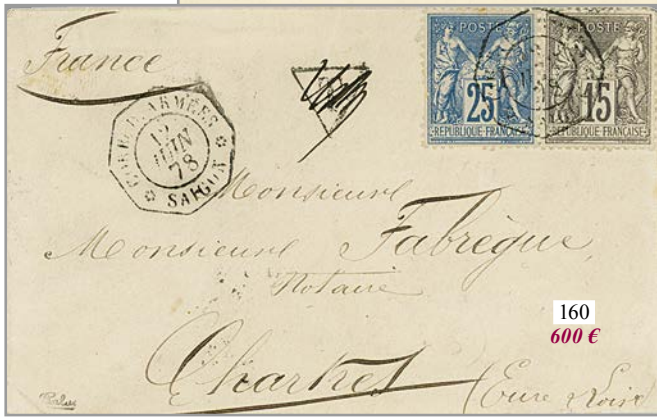 France
POSTE
25
REPUBLIQUE FRANÇAISE
POSTE
15
REPUBLIQUE FRANÇAISE
CORR. D. ARMÉES
12
JUIN
78
SAIGON
Monsieur
Monsieur Fabrègue,
Notaire
Chartres
(Eure & Loir
160
600 €